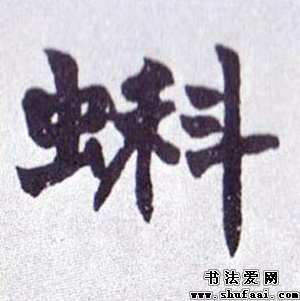 蝌
书法爱网
www.shufaai.com